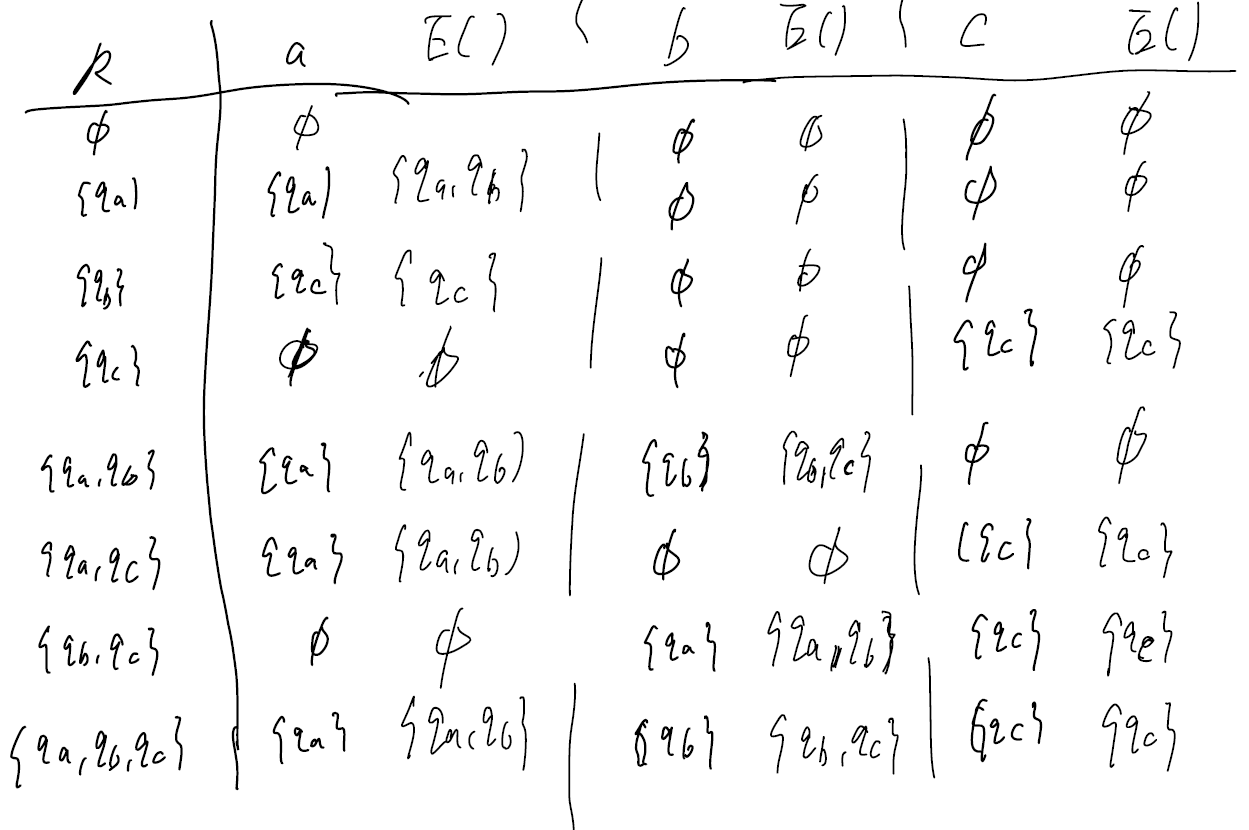 R a E() ( b E() ( c E()
φ φ | φ φ | φ φ
{qa) {qa) {qa, qb} φ φ φ φ
{qb} {qc} {qc} | φ φ φ φ
{qc} φ φ φ φ | {qc} {qc}
{qa, qb} {qa} {qa, qb) | {qb} {qb, qc} | φ φ
{qa, qc} {qa} {qa, qb) φ φ ({c} {qc}
{qb, qc} φ φ {qa} {qa, qb} {qc} {qc}
{qa, qb, qc} {qa} {qa, qb} | {qb} {qb, qc} | {qc} {qc}